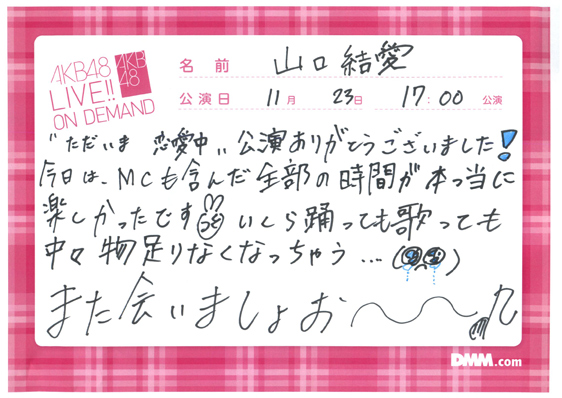 AKB48
LIVE!!
ON DEMAND
AKB
48
名前 山口結愛
公演日 11月 23日 17:00 公演
"ただいま 恋愛中" 公演ありがとうございました!
今日は、MCも含んだ全部の時間が本当に
楽しかったです いくら踊っても歌っても
中々物足りなくなっちゃう…
また会いましょお〜〜
DMM.com